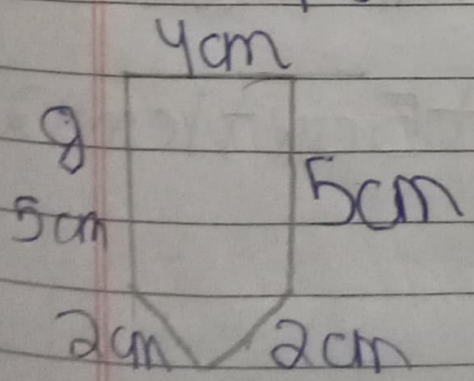 4cm
g
5cm
5cm
2cm
2cm